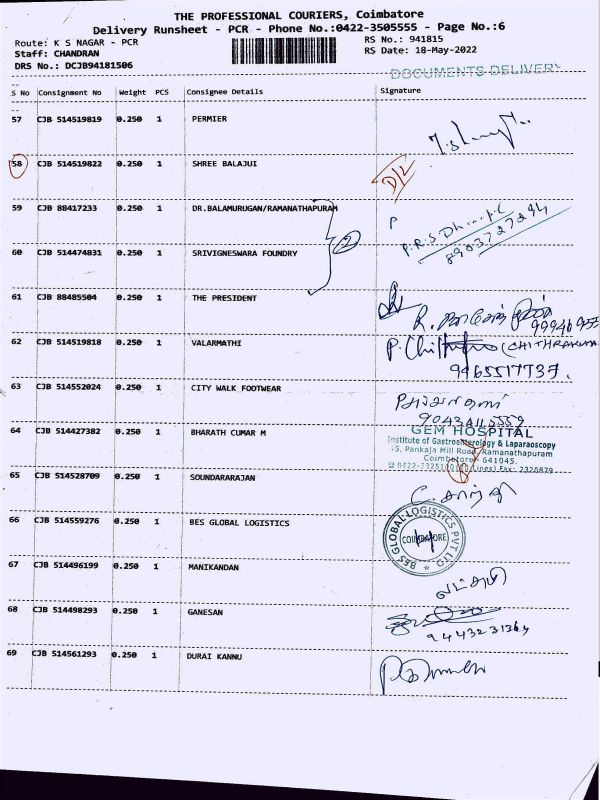 THE PROFESSIONAL COURIERS, Coimbatore
Delivery Runsheet - PCR - Phone No.:0422-3505555 - Page No.:6
Route: K S NAGAR - PCR
RS No.: 941815
Staff: CHANDRAN
RS Date: 18-May-2022
DRS No.: DCJB94181506
DOCUMENTS DELIVERY
S No Consignment No Weight PCS Consignee Details Signature
57 CJB 514519819 0.250 1 PERMIER
58 CJB 514519822 0.250 1 SHREE BALAJUI D/L
59 CJB 88417233 0.250 1 DR.BALAMURUGAN/RAMANATHAPURAM
2
8903727294
60 CJB 514474831 0.250 1 SRIVIGNESWARA FOUNDRY
61 CJB 88485504 0.250 1 THE PRESIDENT
62 CJB 514519818 0.250 1 VALARMATHI
9965517737.
63 CJB 514552024 0.250 1 CITY WALK FOOTWEAR
64 CJB 514427382 0.250 1 BHARATH CUMAR M
GEM HOSPITAL
Institute of Gastroenterology & Laparaoscopy
45, Pankaja Mill Road, Ramanathapuram
Coimbatore - 641045.
65 CJB 514528709 0.250 1 SOUNDARARAJAN
66 CJB 514559276 0.250 1 BES GLOBAL LOGISTICS
BES GLOBAL LOGISTICS PVT LTD
COIMBATORE
67 CJB 514496199 0.250 1 MANIKANDAN
68 CJB 514498293 0.250 1 GANESAN
9443231364
69 CJB 514561293 0.250 1 DURAI KANNU